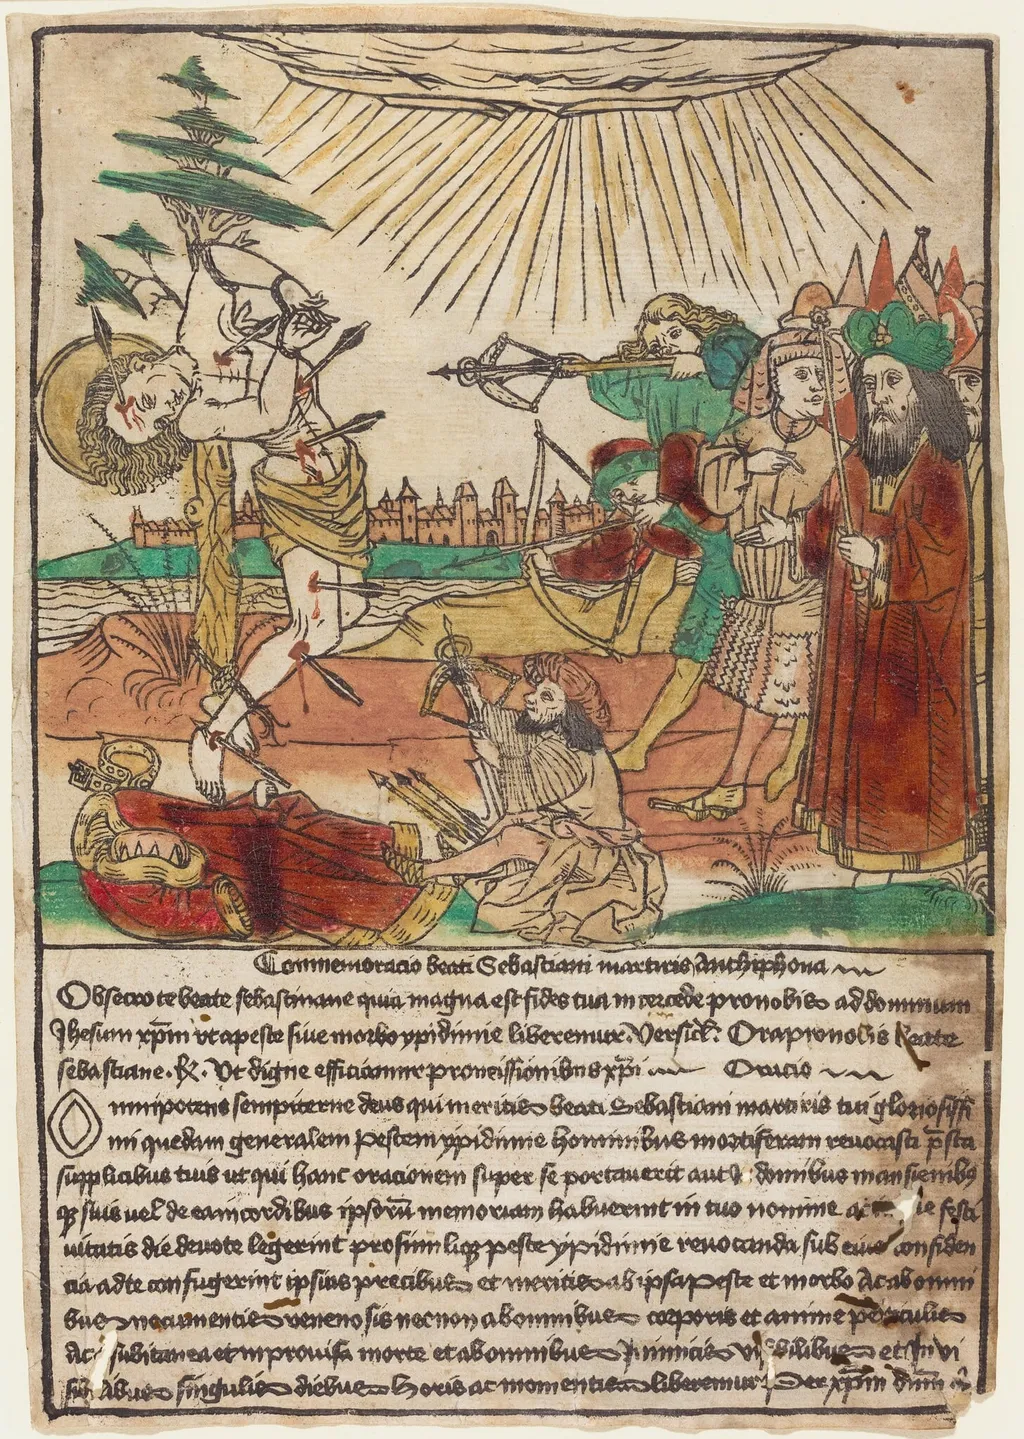 Conmemoracio beati Sebastiani martiris Anthiphona
Obsecro te beate sebastinane quia magna est fides tua intercede pro nobis ad dominum
Jhesum xp̄m ut a peste sive morbo ypidimie liberemur. Versicl: Ora pro nobis beate
sebastiane. R. Ut digne efficiamur promissionibus xp̄i Oracio
Omnipotens sempiterne deus qui meritis beati Sebastiani martiris tui gloriosissi
mi quedam generalem pestem ypidimie hominibus mortiferam revocasti p̄sta
supplicibus tuis ut qui hanc oracionem super se portaverit aut domibus mansionibus
suis vel de ea in cordibus ipsorū memoriam habuerint in tuo nomine festi
vitatis die devote legerint peste ypidimie revocanda sub eius confiden
cia ad te confugerint ipsius precibus et meritis ab ipsa peste et morbo Ac ab omni
bus nocumentis venenosis necnon ab omnibus corporis et anime periculis
Ac subitanea et improvisa morte et ab omnibus Inimicis visibilibus et In vi
sibilibus singulis diebus horis ac momentis liberemur Per xp̄m